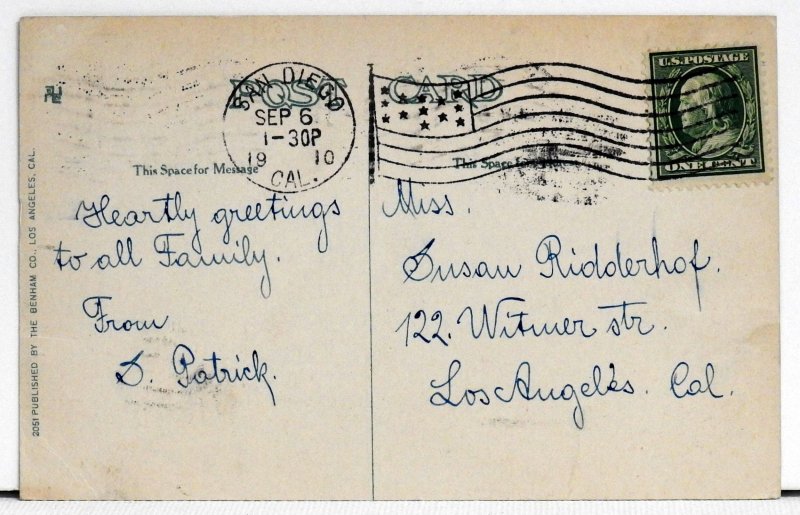 POST CARD
SAN DIEGO
SEP 6
1-30P
19 10
CAL.
U.S. POSTAGE
ONE CENT
This Space for Message
This Space for
Heartly greetings
to all Family.
From
S. Patrick.
Miss.
Susan Ridderhof.
122. Witmer str.
Los Angeles. Cal.
2051 PUBLISHED BY THE BENHAM CO., LOS ANGELES, CAL.